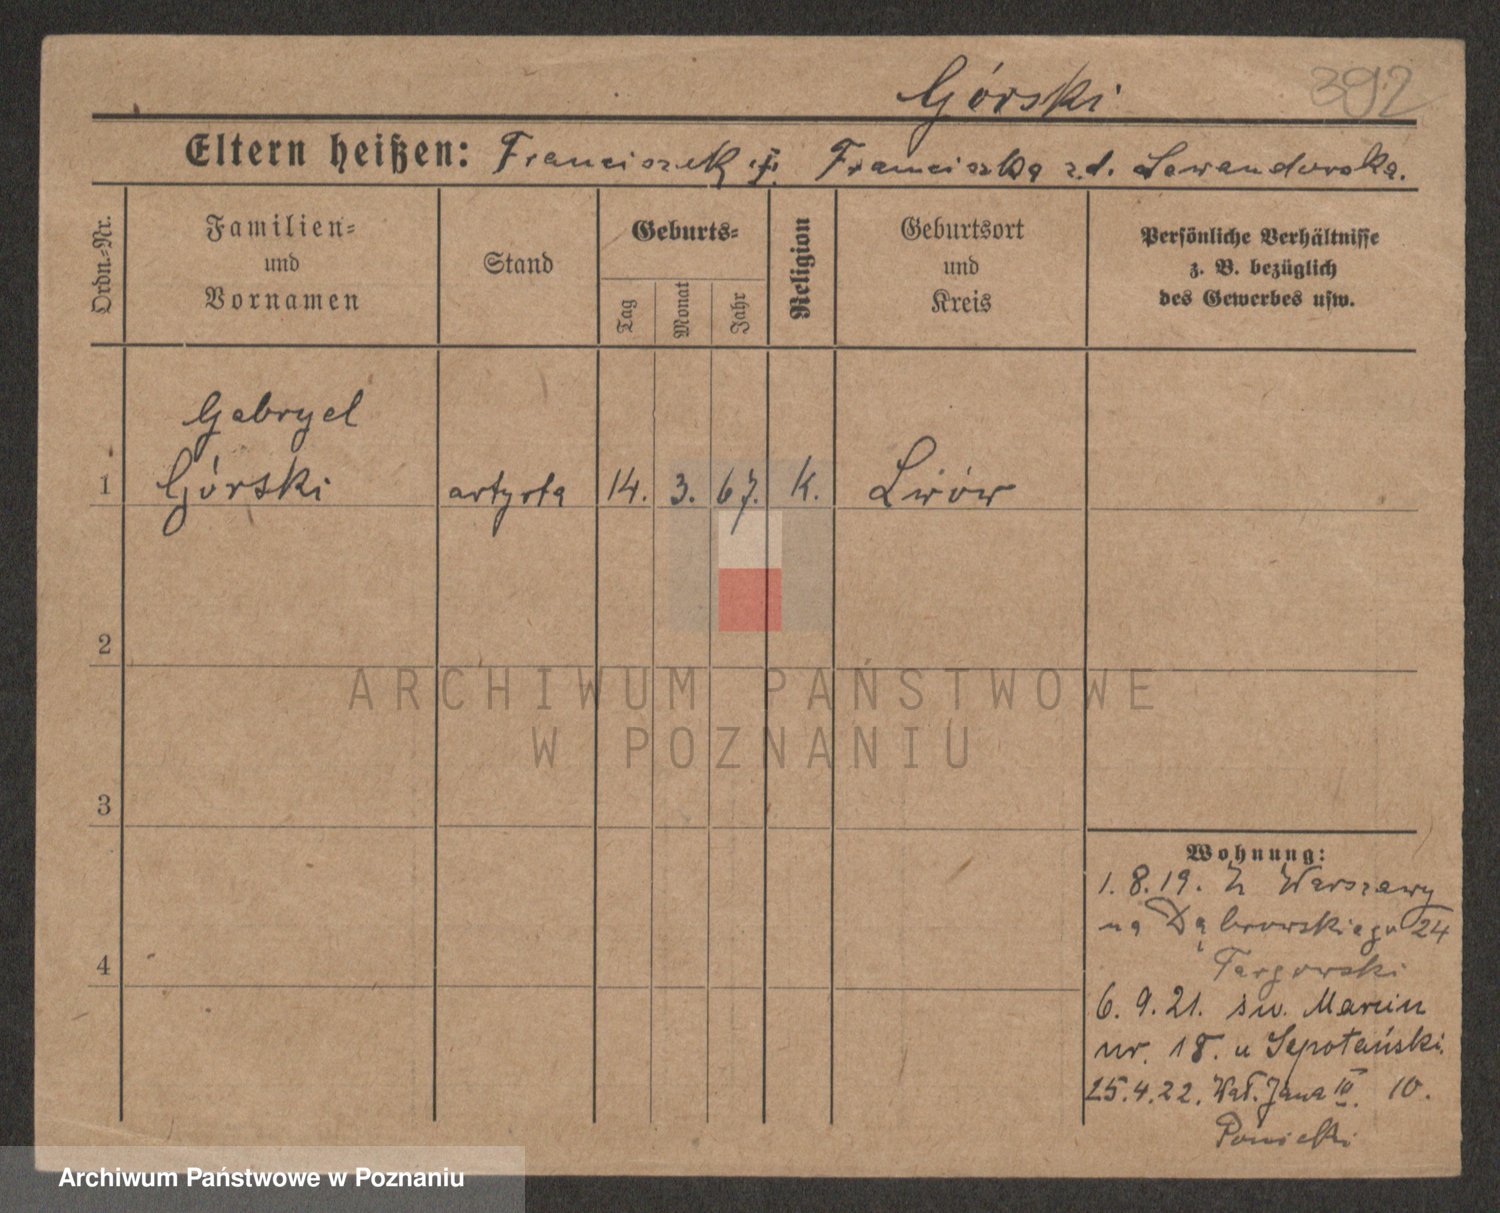 Górski 392
Eltern heißen: Franciszek i Franciszka z.d. Lewandowska.
Ordn.-Nr.
Familien-
und
Vornamen
Stand
Geburts-
Tag
Monat
Jahr
Religion
Geburtsort
und
Kreis
Persönliche Verhältnisse
z. B. bezüglich
des Gewerbes usw.
Gabryel
1 Górski artysta 14. 3. 67. K. Lwów
2
ARCHIWUM PAŃSTWOWE
W POZNANIU
3
Wohnung:
1. 8. 19. Z Warszawy
na Dąbrowskiego 24
Targowski
4
6. 9. 21. św. Marcin
nr. 18. u
25. 4. 22. Wał. Jana III. 10.
Archiwum Państwowe w Poznaniu